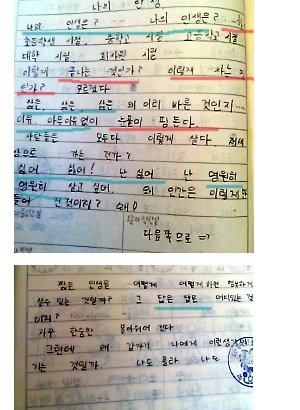 나의 인생
나의 인생은? 나의 인생은?
초등학생 시절, 중학교 시절 고등학교 시절
대학 시절 회사원 시절
이렇게 끝나는 것인가? 이렇게 사는 것
인가? 모르겠다
삶은, 삶은, 삶은 왜 이리 바쁜 것인지...
이유 아무이유없이 눈물이 핑돈다.
사람들은 모두다 이렇게 살다 저세
상으로 가는 건가?
싫어, 싫어! 난 싫어 난 영원히
영원히 살고 싶어. 왜 인간은 이렇게 만
들어 진것이지? 왜!
다음쪽으로 =>
짧은 인생을 어떻게 어떻게 하면
살수 있는 것일까? 그 답은 답은
이지?
자꾸 한숨만 몰아쉬어 진다
그런데 왜 갑자기 나에게 이런생각이
기는 것일까 나도 몰라 나도